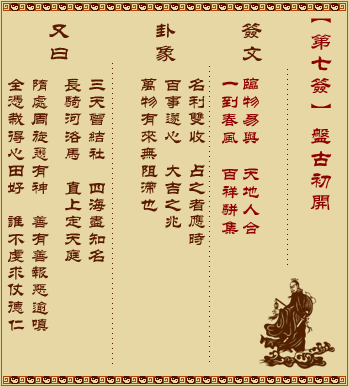 【第七簽】 盤古初開
簽文
臨物易與 天地人合
一到春風 百祥駢集
卦象
名利雙收 占之者應時
百事遂心 大吉之兆
萬物有來無阻滯也
又曰
三天曾結社 四海盡知名
長騎河洛馬 直上定天庭
隋處周旋惹有神 善有善報惡逾嗔
全憑栽得心田好 誰不虔求仗德仁